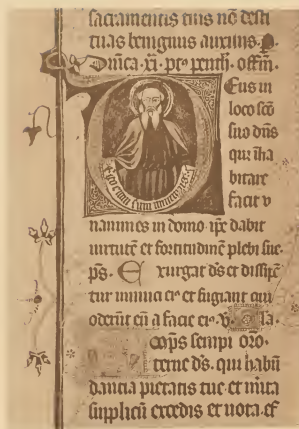 sacramentis tuis nō desti
tuas benignus auxiliis. P.
Dñica xi. pꝰ penth. offm̄.
Deus in
loco scō
suo dñs
qui iha
bitare
facit v
nanimes in domo ipe dabit
uirtutē et fortitudinē plebi sue.
pš. Exurgat dš et dissipē
tur inimici eiꝰ et fugiant qui
oderūt eū a facie eiꝰ.
Omps sempi
terne dš. qui habū
dancia pietatis tue et mita
supplicū excedis et uota. ef